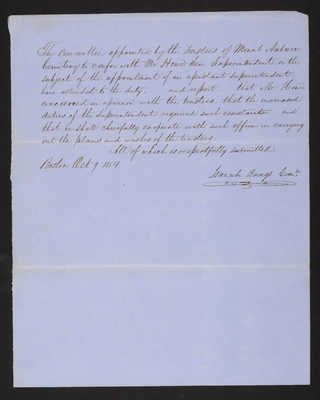 The Committee appointed by the Trustees of Mount Auburn
Cemetery to confer with Mr Howe the Superintendent on the
subject of the appointment of an assistant superintendent
have attended to the duty, and report that Mr Howe
in opinion with the trustees that the increased
duties of the Superintendent require such assistance and
that he shall cheerfully cooperate with such officer in carrying
out the plans and wishes of the trustees.
All of which is respectfully submitted.
Boston Oct 9
Isaiah Bangs Com.